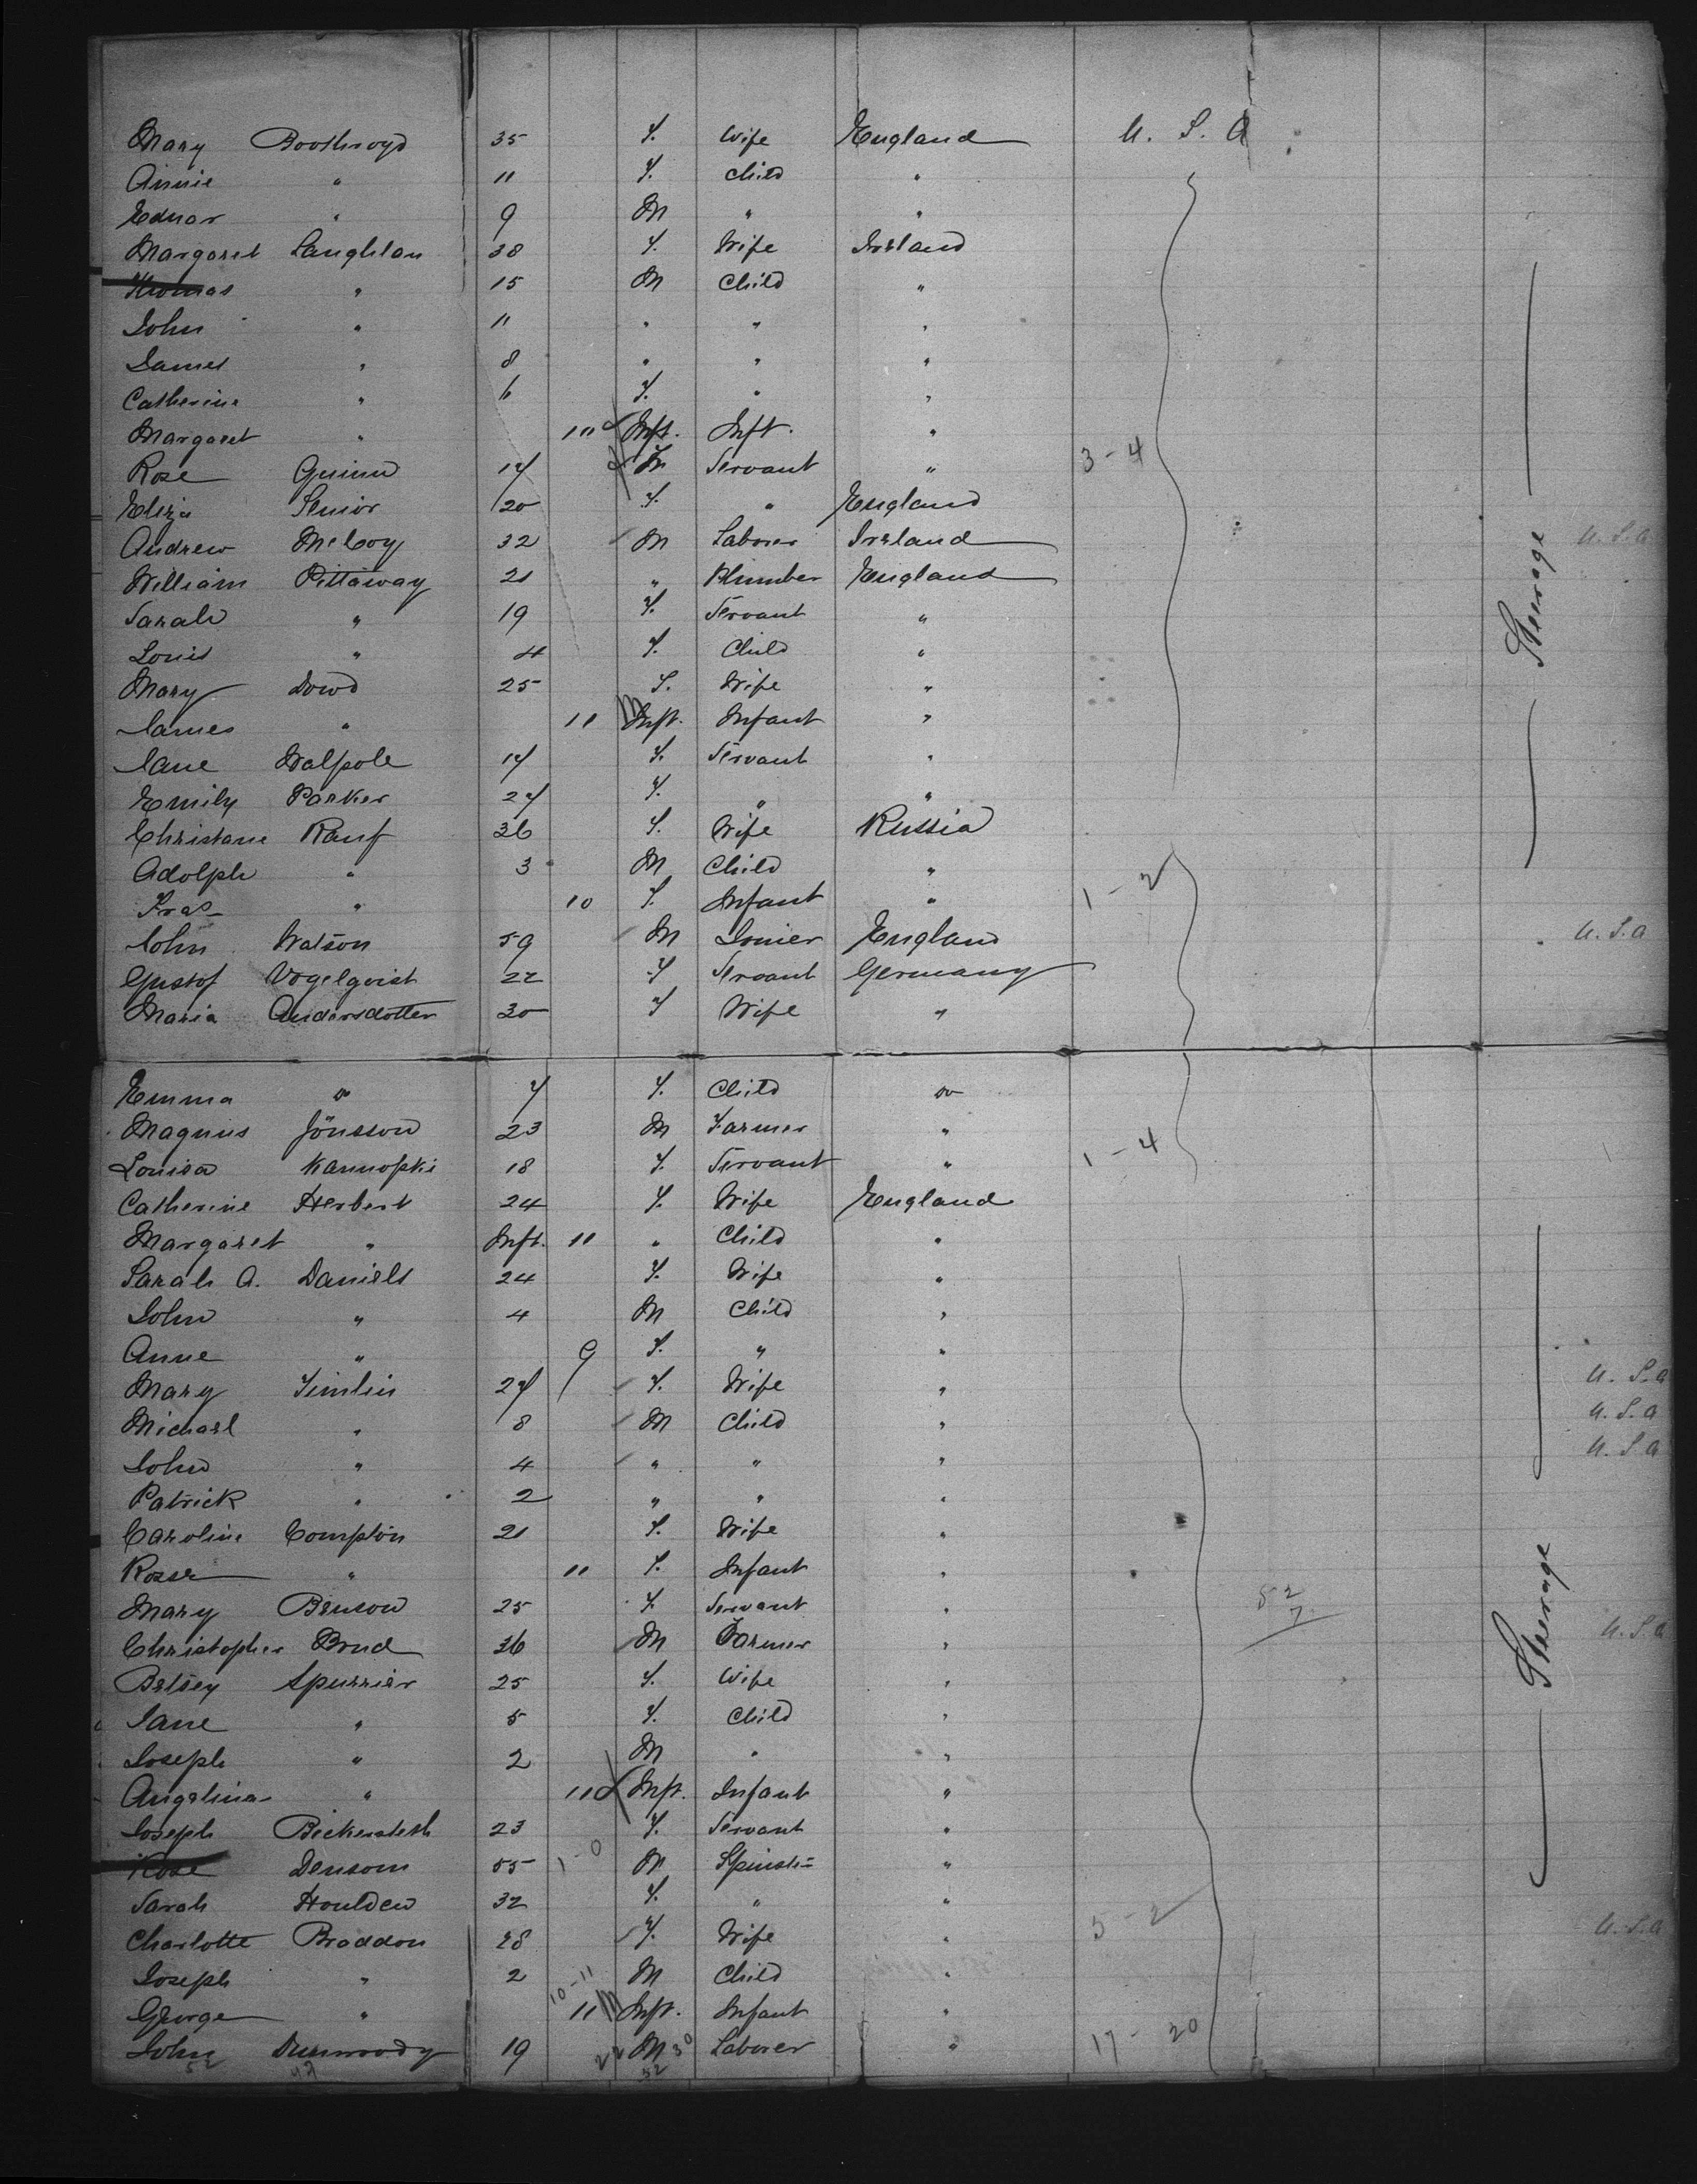 Mary Boothroyd 35 F. Wife England U. S. A
Annie " 11 F. Child "
Edner " 9 M " "
Margaret Laughlan 38 F. Wife Ireland
Thomas " 15 M Child "
John " 11 " " "
James " 8 " " "
Catherine " 6 F. " "
Margaret " 11 Inft. Inft. "
Rose Guinn 17 Servant " 3-4
Eliza Senior 20 F. " England
Andrew McCoy 32 M Laborer Ireland U.S.A
William Pittaway 21 " Plumber England
Sarah " 19 F. Servant " Steerage
Louis " 4 F. Child "
Mary Dowd 25 F. Wife "
James " 11 M Inft. Infant "
Jane Walpole 17 F. Servant "
Emily Parker 27 F. " "
Christane Rauf 36 F. Wife Russia
Adolph " 3 M Child "
" 10 F. Infant " 1-2
John Watson 59 M Joiner England U.S.A
Gustof Vogelqvist 22 F Servant Germany
Maria Andersdotter 30 F Wife "
Emma Do 7 F. Child Do
Magnus Jönsson 23 M Farmer "
Louisa Kannofski 18 F. Servant " 1-4
Catherine Herbert 24 F. Wife England
Margaret " Inft. 11 " Child "
Sarah A. Daniels 24 F. Wife "
John " 4 M Child "
Anne " 9 F. " "
Mary Timlin 27 F. Wife " U. S.A
Michael " 8 M Child " U.S.A
John " 4 " " " U.S.A
Patrick " 2 " " "
Caroline Compton 21 F. Wife "
" 11 F. Infant "
Mary Benson 25 F. Servant " 52 7
Christopher Brud 36 M Farmer " U.S.A
Betsey Spurrier 25 F. Wife " Steerage
Jane " 5 F. Child "
Joseph " 2 M " "
Angelina " 11 Inft. Infant "
Joseph Bickersteth 23 F. Servant "
Rose Densom 55 1-0 M Spinstr "
Sarah Houlden 32 F. " "
Charlotte Braddon 28 F. Wife " 5-2 U.S.A
Joseph " 2 M Child "
George " 10-11 11 M Inft. Infant "
John Dunwoody 19 22 M 30 Laborer " 17-20
52 42 52